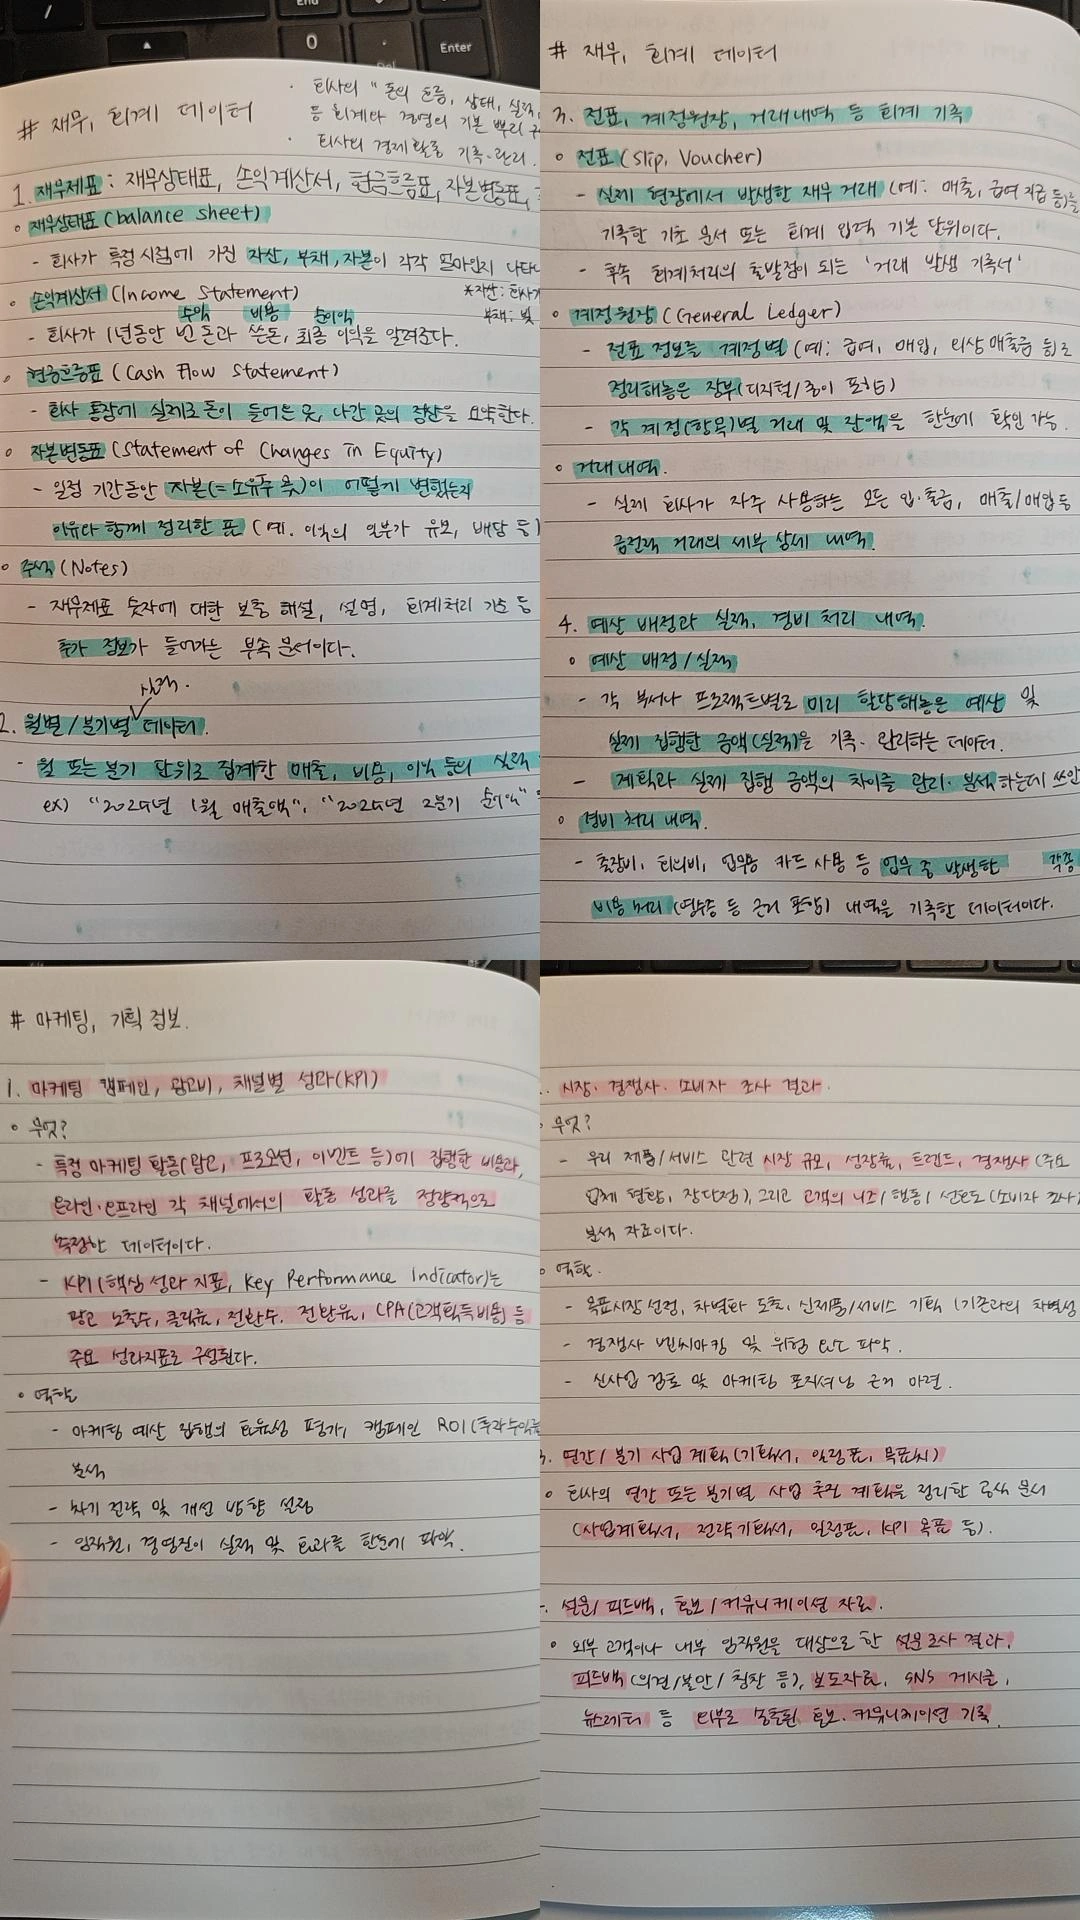 # 재무, 회계 데이터
· 회사의 "돈의 흐름, 상태, 실적,
등 회계와 경영의 기본 뿌리
· 회사의 경제활동 기록·관리.
1. 재무제표 : 재무상태표, 손익계산서, 현금흐름표, 자본변동표,
∘ 재무상태표 (balance sheet)
- 회사가 특정 시점에 가진 자산, 부채, 자본이 각각 얼마인지 나타내
∘ 손익계산서 (Income Statement)
*자산: 회사가
수익 비용 순이익
부채: 빚
- 회사가 1년동안 번 돈과 쓴돈, 최종 이익을 알려준다.
∘ 현금흐름표 (Cash Flow Statement)
- 회사 통장에 실제로 돈이 들어온 곳, 나간 곳의 정산을 요약한다.
∘ 자본변동표 (Statement of Changes in Equity)
- 일정 기간동안 자본(=소유주 몫)이 어떻게 변했는지
이유와 함께 정리한 표 (예. 이익의 일부가 유보, 배당 등)
∘ 주석 (Notes)
- 재무제표 숫자에 대한 보충 해설, 설명, 회계처리 기준 등
추가 정보가 들어가는 부속 문서이다.
실적.
2. 월별/분기별 데이터.
- 월 또는 분기 단위로 집계한 매출, 비용, 이익 등의 실적
ex) "2025년 1월 매출액", "2025년 2분기 순이익"
# 재무, 회계 데이터
3. 전표, 계정원장, 거래내역 등 회계 기록
∘ 전표 (slip, Voucher)
- 실제 현장에서 발생한 재무 거래 (예: 매출, 급여 지급 등)를
기록한 기초 문서 또는 회계 입력 기본 단위이다.
- 후속 회계처리의 출발점이 되는 '거래 발생 기록서'
∘ 계정원장 (General Ledger)
- 전표 정보를 계정별 (예: 급여, 매입, 외상매출금 등)로
정리해놓은 장부(디지털/종이 포함)
- 각 계정(항목)별 거래 및 잔액을 한눈에 확인 가능.
∘ 거래내역.
- 실제 회사가 자주 사용하는 모든 입·출금, 매출/매입 등
금전적 거래의 세부 상세 내역.
4. 예산 배정과 실적, 경비 처리 내역.
∘ 예산 배정/실적
- 각 부서나 프로젝트별로 미리 할당해놓은 예산 및
실제 집행한 금액(실적)을 기록·관리하는 데이터.
- 계획과 실제 집행 금액의 차이를 관리·분석하는데 쓰인
∘ 경비 처리 내역.
- 출장비, 회의비, 업무용 카드 사용 등 업무 중 발생한 각종
비용 처리 (영수증 등 근거 포함) 내역을 기록한 데이터이다.
# 마케팅, 기획 정보.
1. 마케팅 캠페인, 광고비, 채널별 성과(KPI)
∘ 무엇?
- 특정 마케팅 활동(광고, 프로모션, 이벤트 등)에 집행한 비용과,
온라인·오프라인 각 채널에서의 활동 성과를 정량적으로
측정한 데이터이다.
- KPI(핵심 성과 지표, Key Performance Indicator)는
광고 노출수, 클릭률, 전환수, 전환율, CPA(고객획득비용) 등
주요 성과지표로 구성된다.
∘ 역할
- 마케팅 예산 집행의 효율성 평가, 캠페인 ROI(투자수익률
분석
- 차기 전략 및 개선 방향 설정
- 임직원, 경영진이 실적 및 효과를 한눈에 파악.
. 시장·경쟁사·소비자 조사 결과.
∘ 무엇?
- 우리 제품/서비스 관련 시장 규모, 성장률, 트렌드, 경쟁사 (주요
업체 현황, 장단점), 그리고 고객의 니즈/행동/선호도 (소비자 조사)
분석 자료이다.
∘ 역할.
- 목표시장 선정, 차별화 도출, 신제품/서비스 기획 (기존과의 차별성
- 경쟁사 벤치마킹 및 위험 요소 파악.
- 신사업 검토 및 마케팅 포지셔닝 근거 마련.
3. 연간/분기 사업 계획 (기획서, 일정표, 목표치)
∘ 회사의 연간 또는 분기별 사업 추진 계획을 정리한 공식 문서
(사업계획서, 전략기획서, 일정표, KPI 목표 등).
. 설문/피드백, 홍보/커뮤니케이션 자료.
∘ 외부 고객이나 내부 임직원을 대상으로 한 설문조사 결과,
피드백 (의견/불만/칭찬 등), 보도자료, SNS 게시글,
뉴스레터 등 외부로 송출된 홍보·커뮤니케이션 기록.